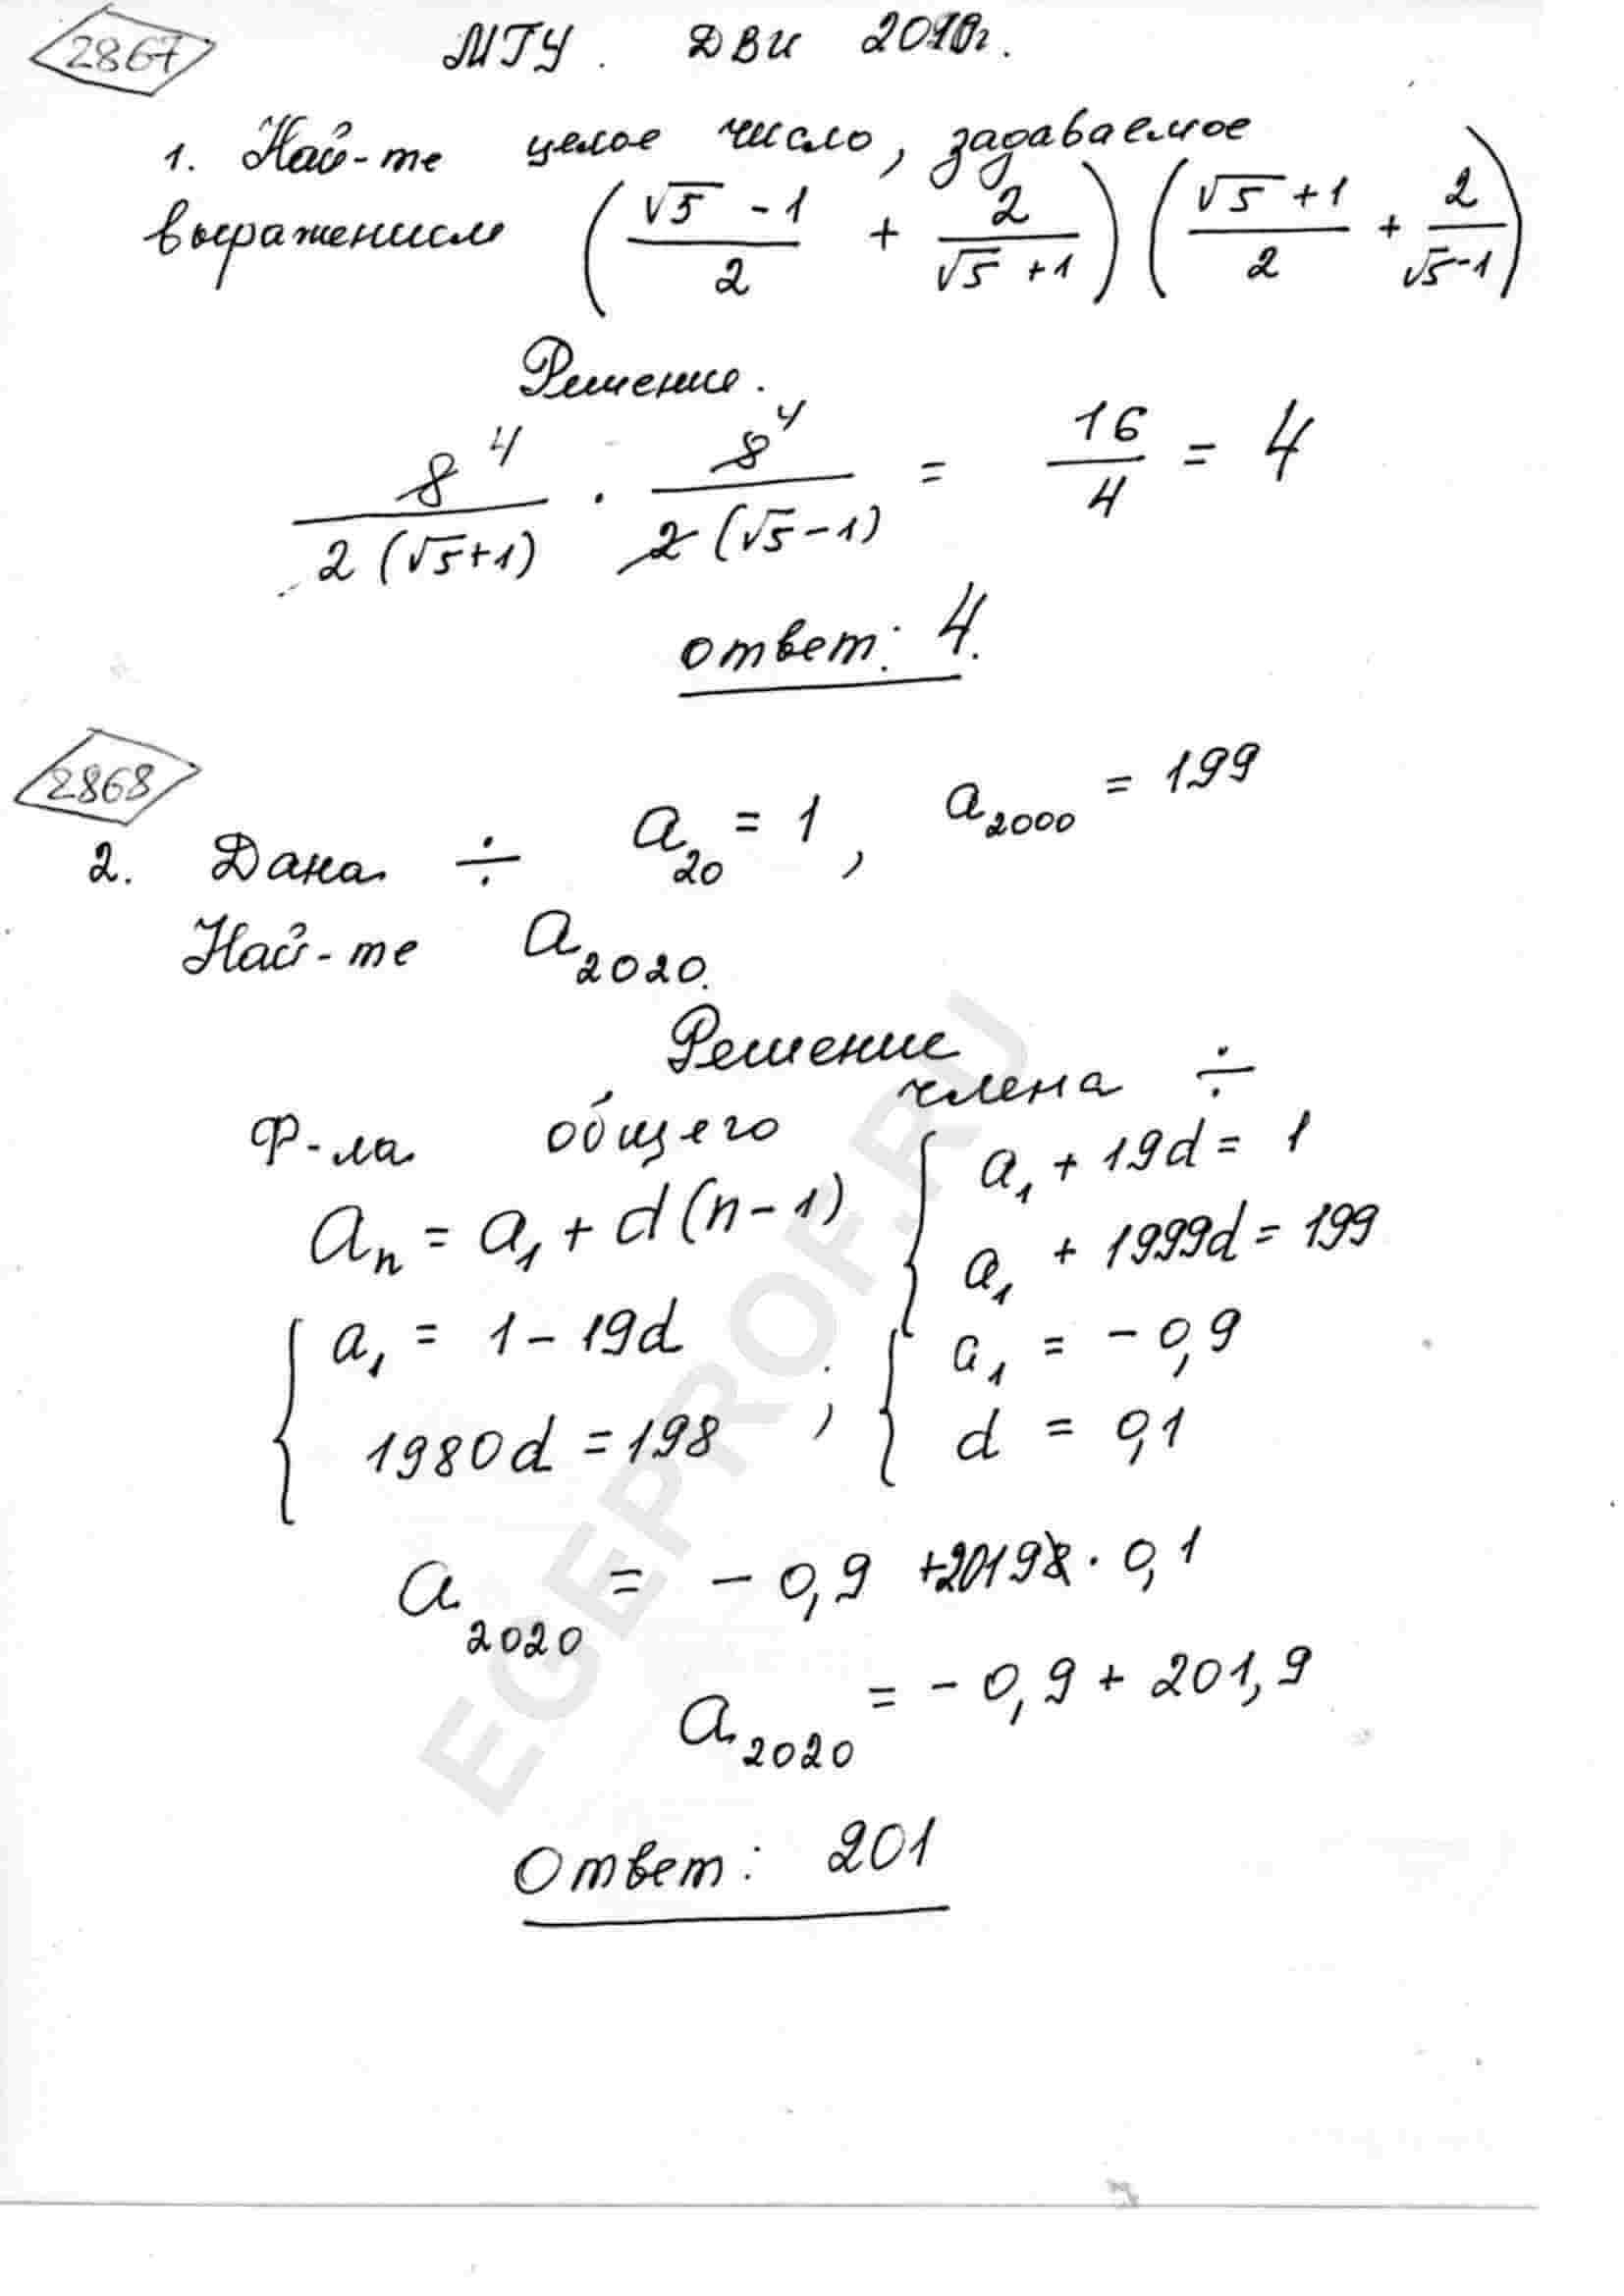 2867
МГУ. ДВИ 2019г.
1. Най-те целое число, задаваемое
выражением ((√5 - 1)/2 + 2/(√5 + 1)) ((√5 + 1)/2 + 2/(√5 - 1))
Решение.
8 4 / 2(√5+1) · 8 4 / 2(√5-1) = 16/4 = 4
ответ: 4.
2868
2. Дана ÷ a₂₀ = 1, a₂₀₀₀ = 199
Най-те a₂₀₂₀.
Решение
Ф-ла общего члена ÷
aₙ = a₁ + d(n-1) { a₁ + 19d = 1
a₁ + 1999d = 199
{ a₁ = 1 - 19d
1980d = 198 ; { a₁ = - 0,9
d = 0,1
a₂₀₂₀ = - 0,9 + 2019 · 0,1
a₂₀₂₀ = - 0,9 + 201,9
Ответ: 201
EGEPROF.RU